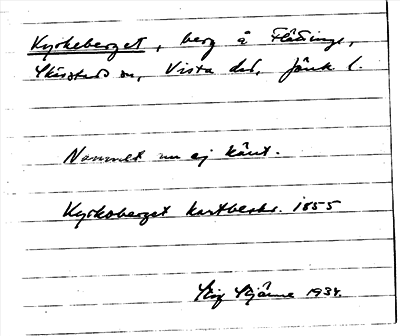 Kyrkeberget, berg å Flättinge,
Skärstads sn, Vista hd, Jönk. l.
Namnet nu ej känt.
Kyrkoberget kartbeskr. 1855
Stig Bjärne 1934.